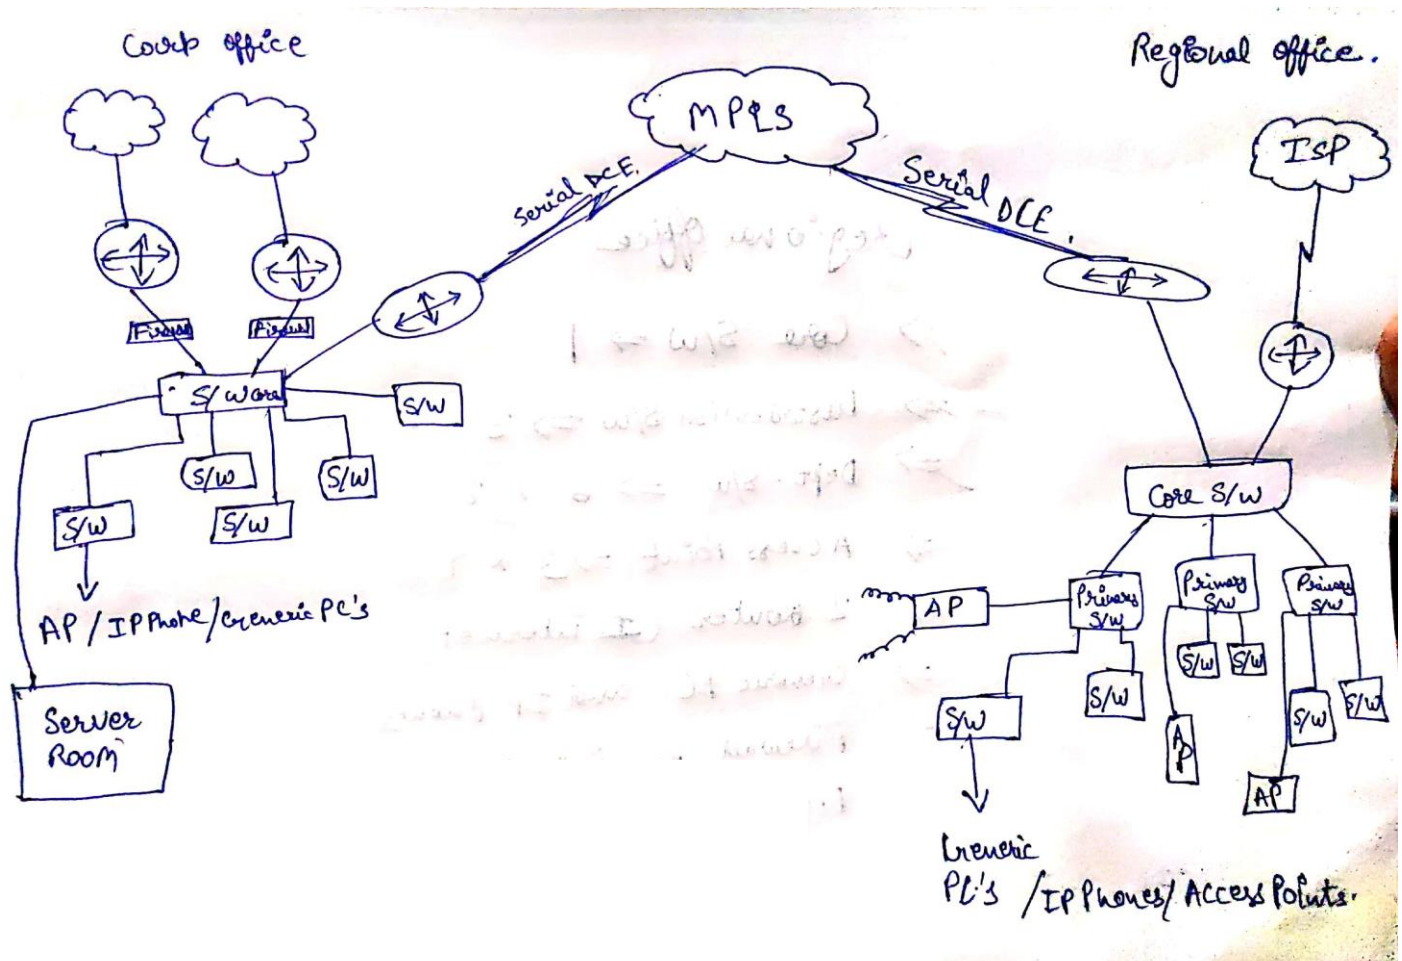 Corp office
Regional office.
MPLS
ISP
Serial DCE.
Serial
DCE.
Firewall
Firewall
S/W Core
S/W
S/W
S/W
S/W
S/W
AP / IP Phone / Generic PC's
Server
ROOM
Core S/W
Primary
S/W
Primary
S/W
Primary
S/W
AP
S/W
S/W
S/W
S/W
S/W
S/W
AP
AP
Generic
PC's / IP Phones / Access Points.